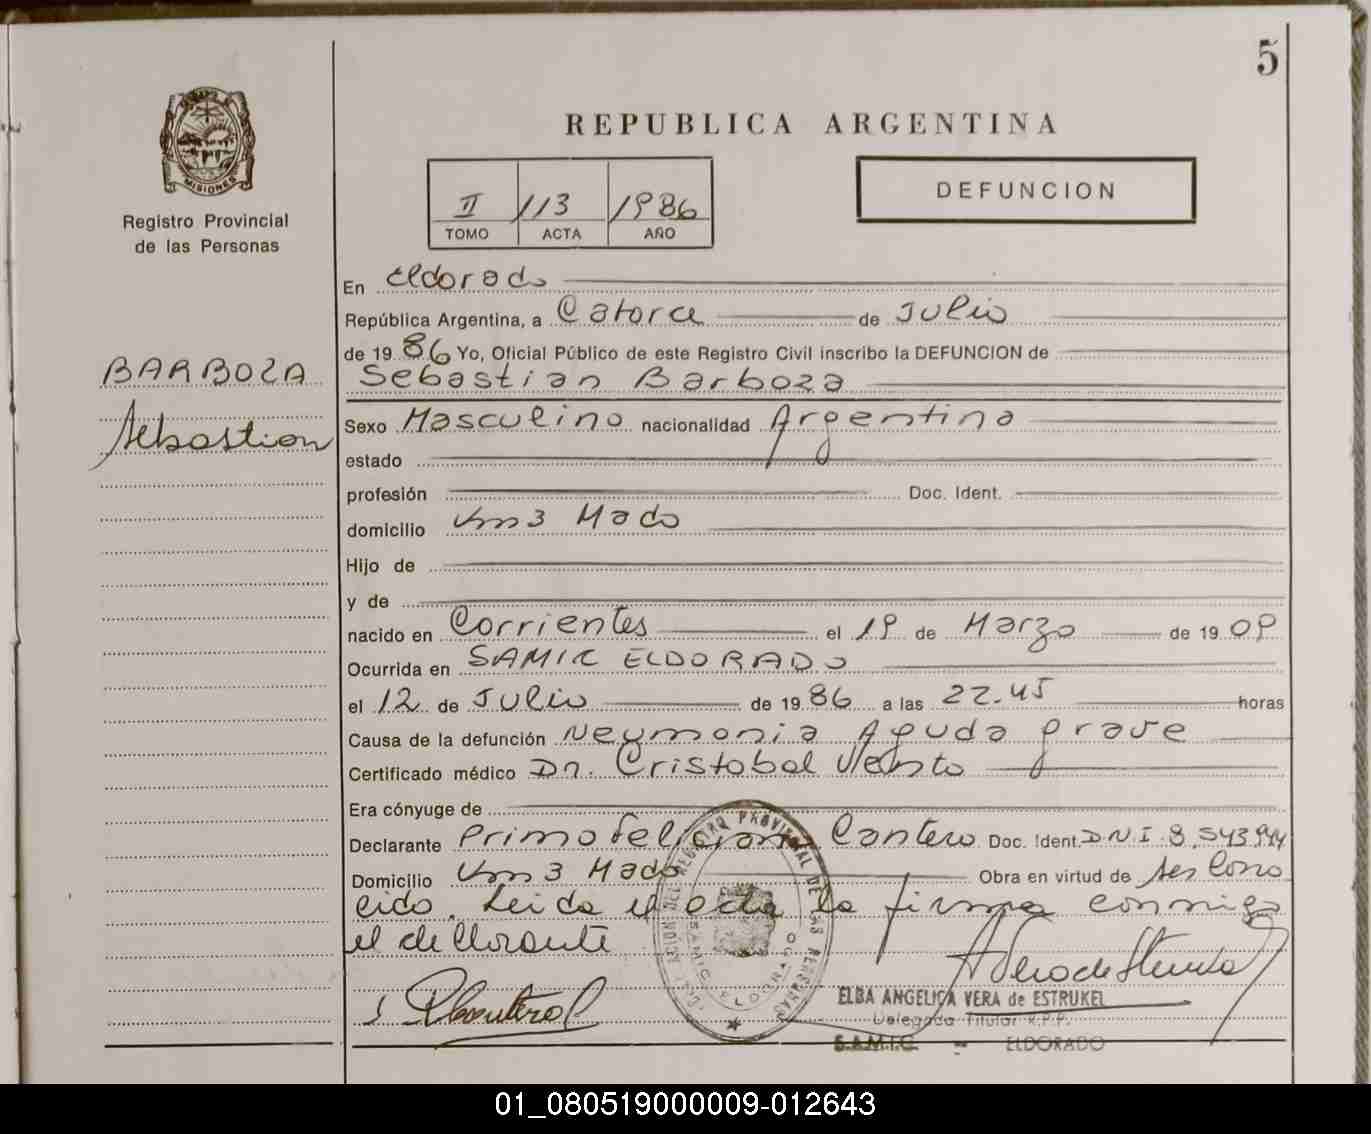 5
MISIONES
Registro Provincial
de las Personas
REPUBLICA ARGENTINA
II 113 1986
TOMO ACTA AÑO
DEFUNCION
En Eldorado
República Argentina, a Catorce de Julio
de 1986 Yo, Oficial Público de este Registro Civil inscribo la DEFUNCION de
BARBOZA
Sebastian Barboza
Sebastian
Sexo Masculino nacionalidad Argentina
estado
profesión Doc. Ident.
domicilio Km 3 Mado
Hijo de
y de
nacido en Corrientes el 19 de Marzo de 1909
Ocurrida en SAMIC ELDORADO
el 12 de Julio de 1986 a las 22.45 horas
Causa de la defunción Neumonia Aguda grave
Certificado médico Dr. Cristobal
Era cónyuge de
Declarante Primo Feliciano Cantero Doc. Ident D.N.I 8.543.944
Domicilio Km 3 Mado Obra en virtud de ser Cono
cido. Leida el acta la firma conmigo
el declarante
REGISTRO PROVINCIAL DE LAS PERSONAS
SAMIC ELDORADO
ELBA ANGELICA VERA de ESTRUKEL
Delegada Titular R.P.P.
S.A.M.I.C. - ELDORADO
01_080519000009-012643